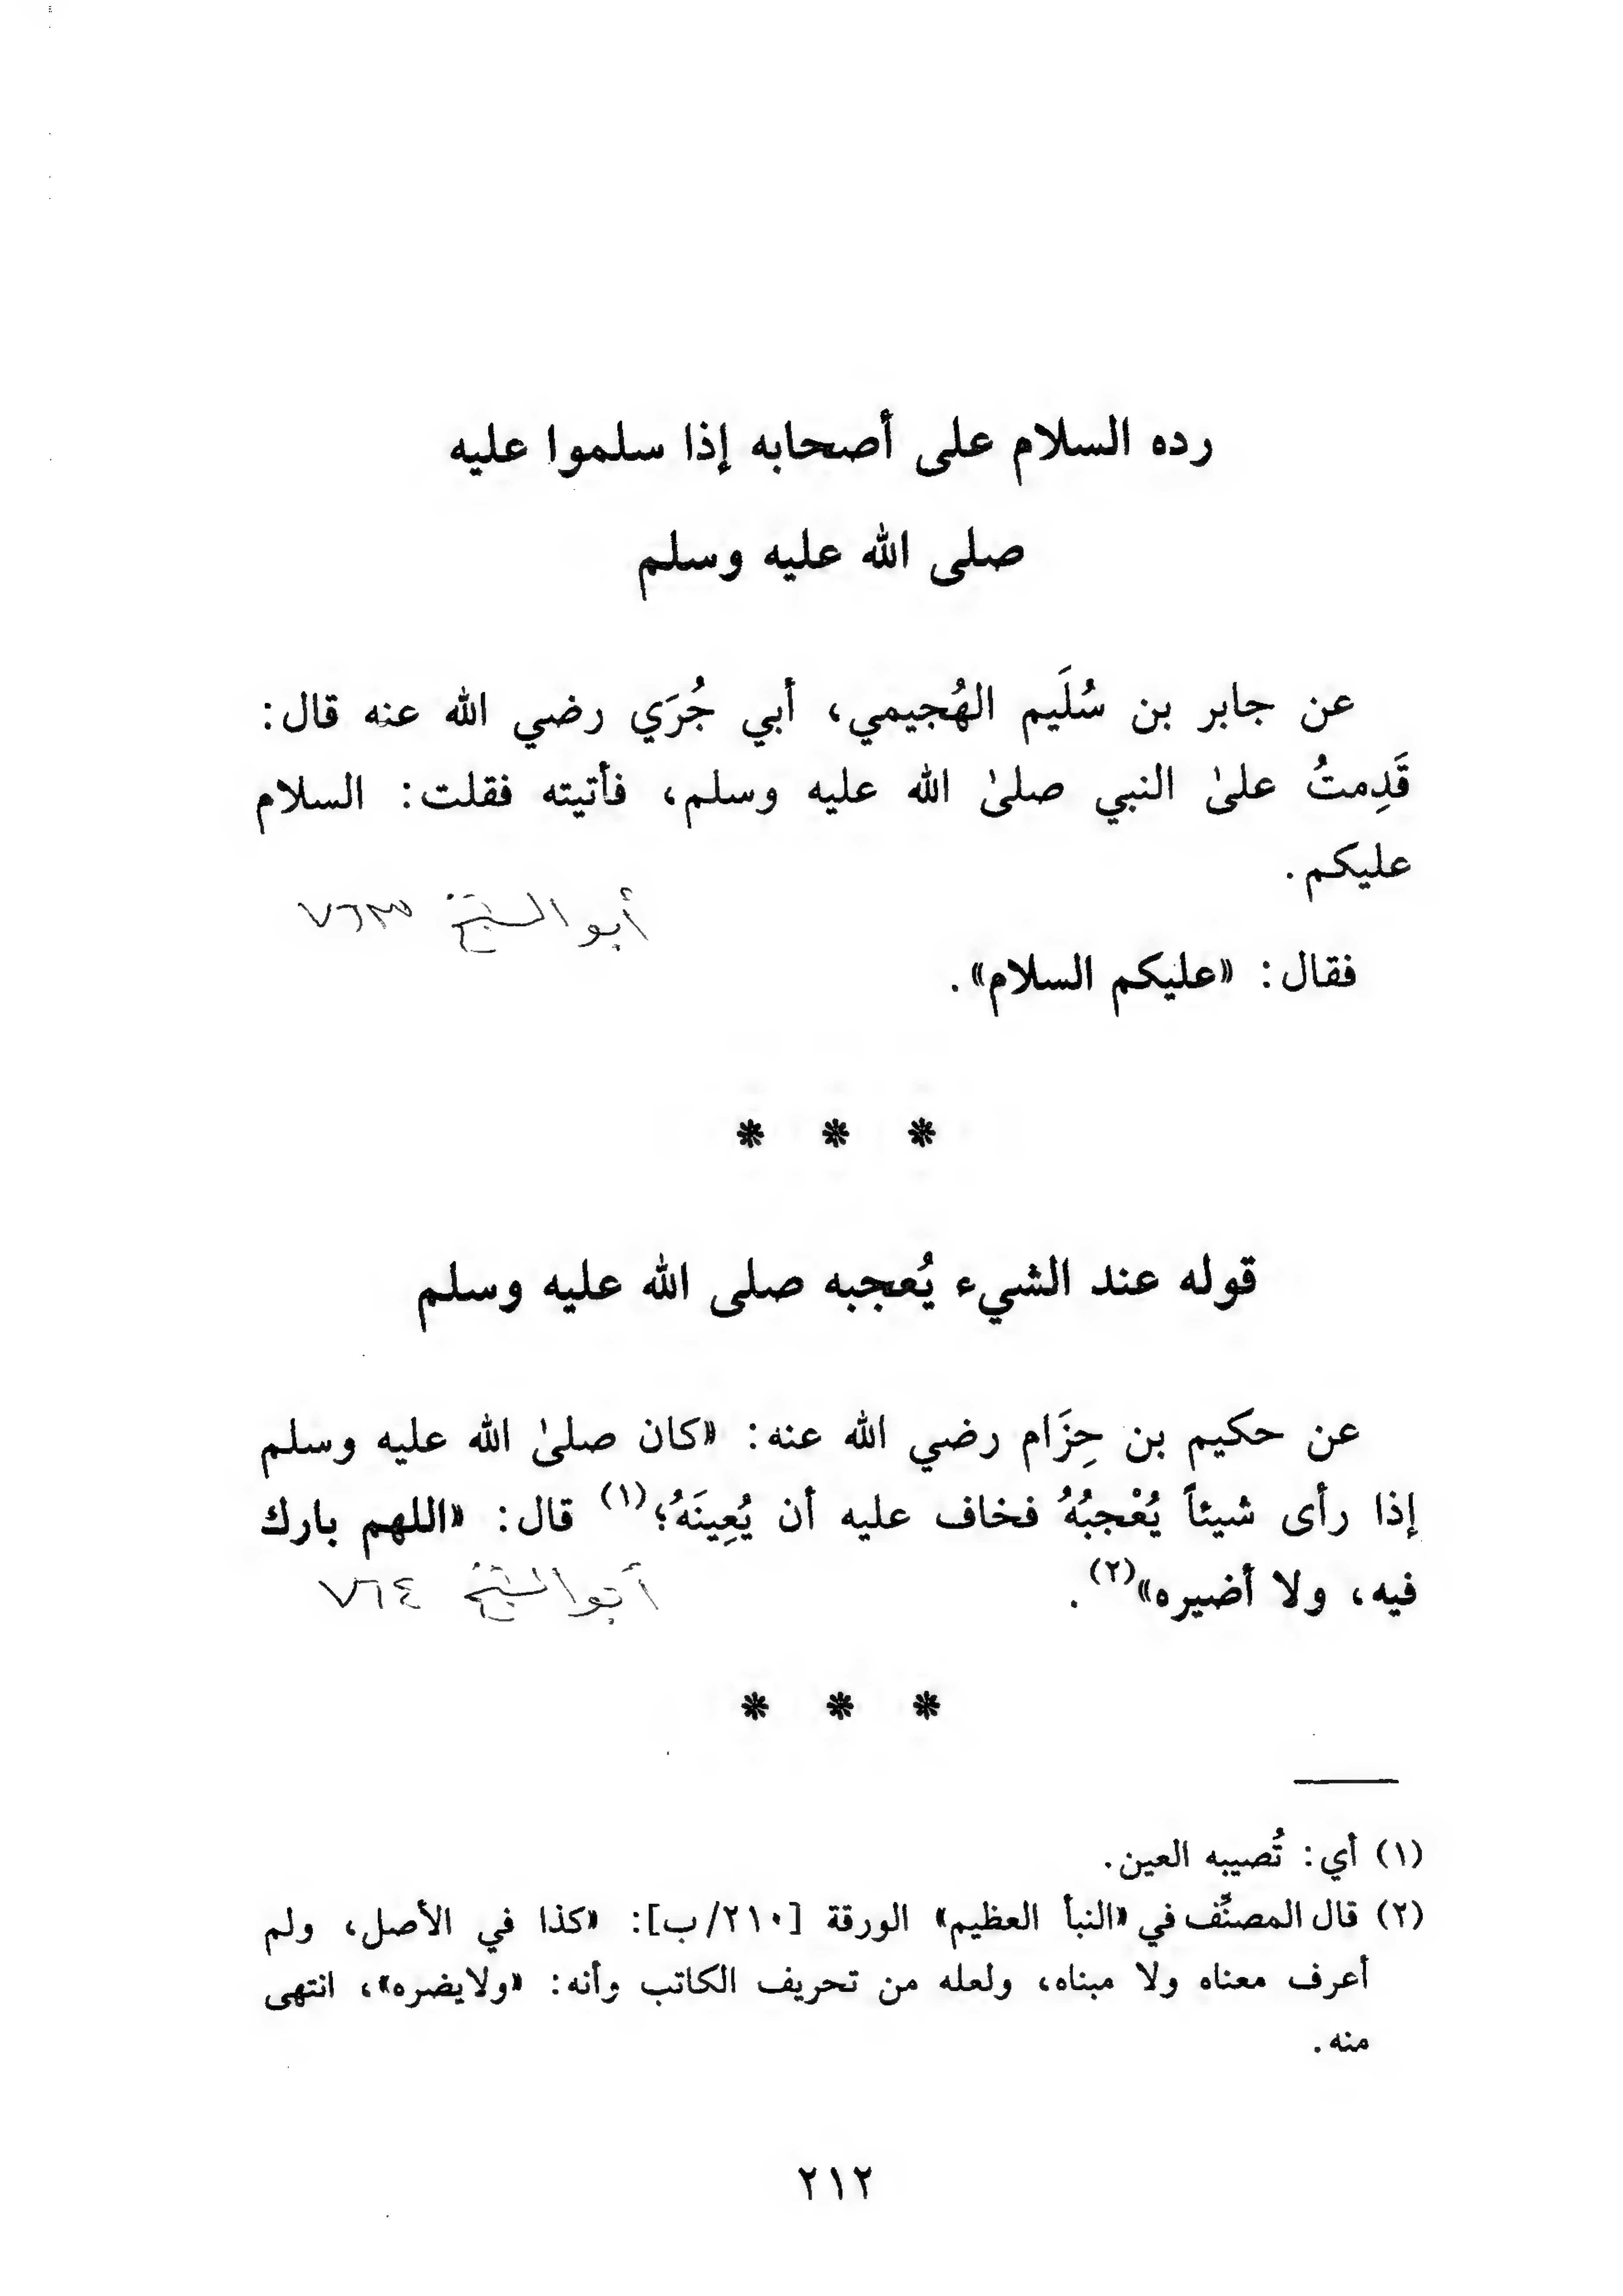 رده السلام على أصحابه إذا سلموا عليه
صلى الله عليه وسلم
عن جابر بن سُلَيم الهُجيمي، أبي جُرَي رضي الله عنه قال:
قَدِمتُ علىٰ النبي صلىٰ الله عليه وسلم، فأتيته فقلت: السلام
عليكم.
أبو الشيخ ٧٦٣
فقال: «عليكم السلام».
* * *
قوله عند الشيء يُعجبه صلى الله عليه وسلم
عن حكيم بن حِزَام رضي الله عنه: «كان صلىٰ الله عليه وسلم
إذا رأى شيئاً يُعْجبُهُ فخاف عليه أن يُعِينَهُ؛(١) قال: «اللهم بارك
فيه، ولا أضيره»(٢).
أبو الشيخ ٧٦٤
* * *
(١) أي: تُصيبه العين.
(٢) قال المصنِّف في «النبأ العظيم» الورقة [٢١٠/ب]: «كذا في الأصل، ولم
أعرف معناه ولا مبناه، ولعله من تحريف الكاتب وأنه: «ولايضره»، انتهى
منه.
٢١٢